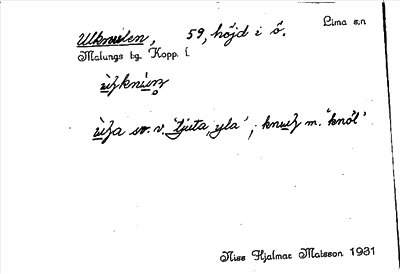 Ulknulen, 59, höjd i ö. Lima s:n
Malungs tg. Kopp. l.
sv. v. 'tjuta, yla'; m. 'knöl'
Niss Hjalmar Matsson 1931